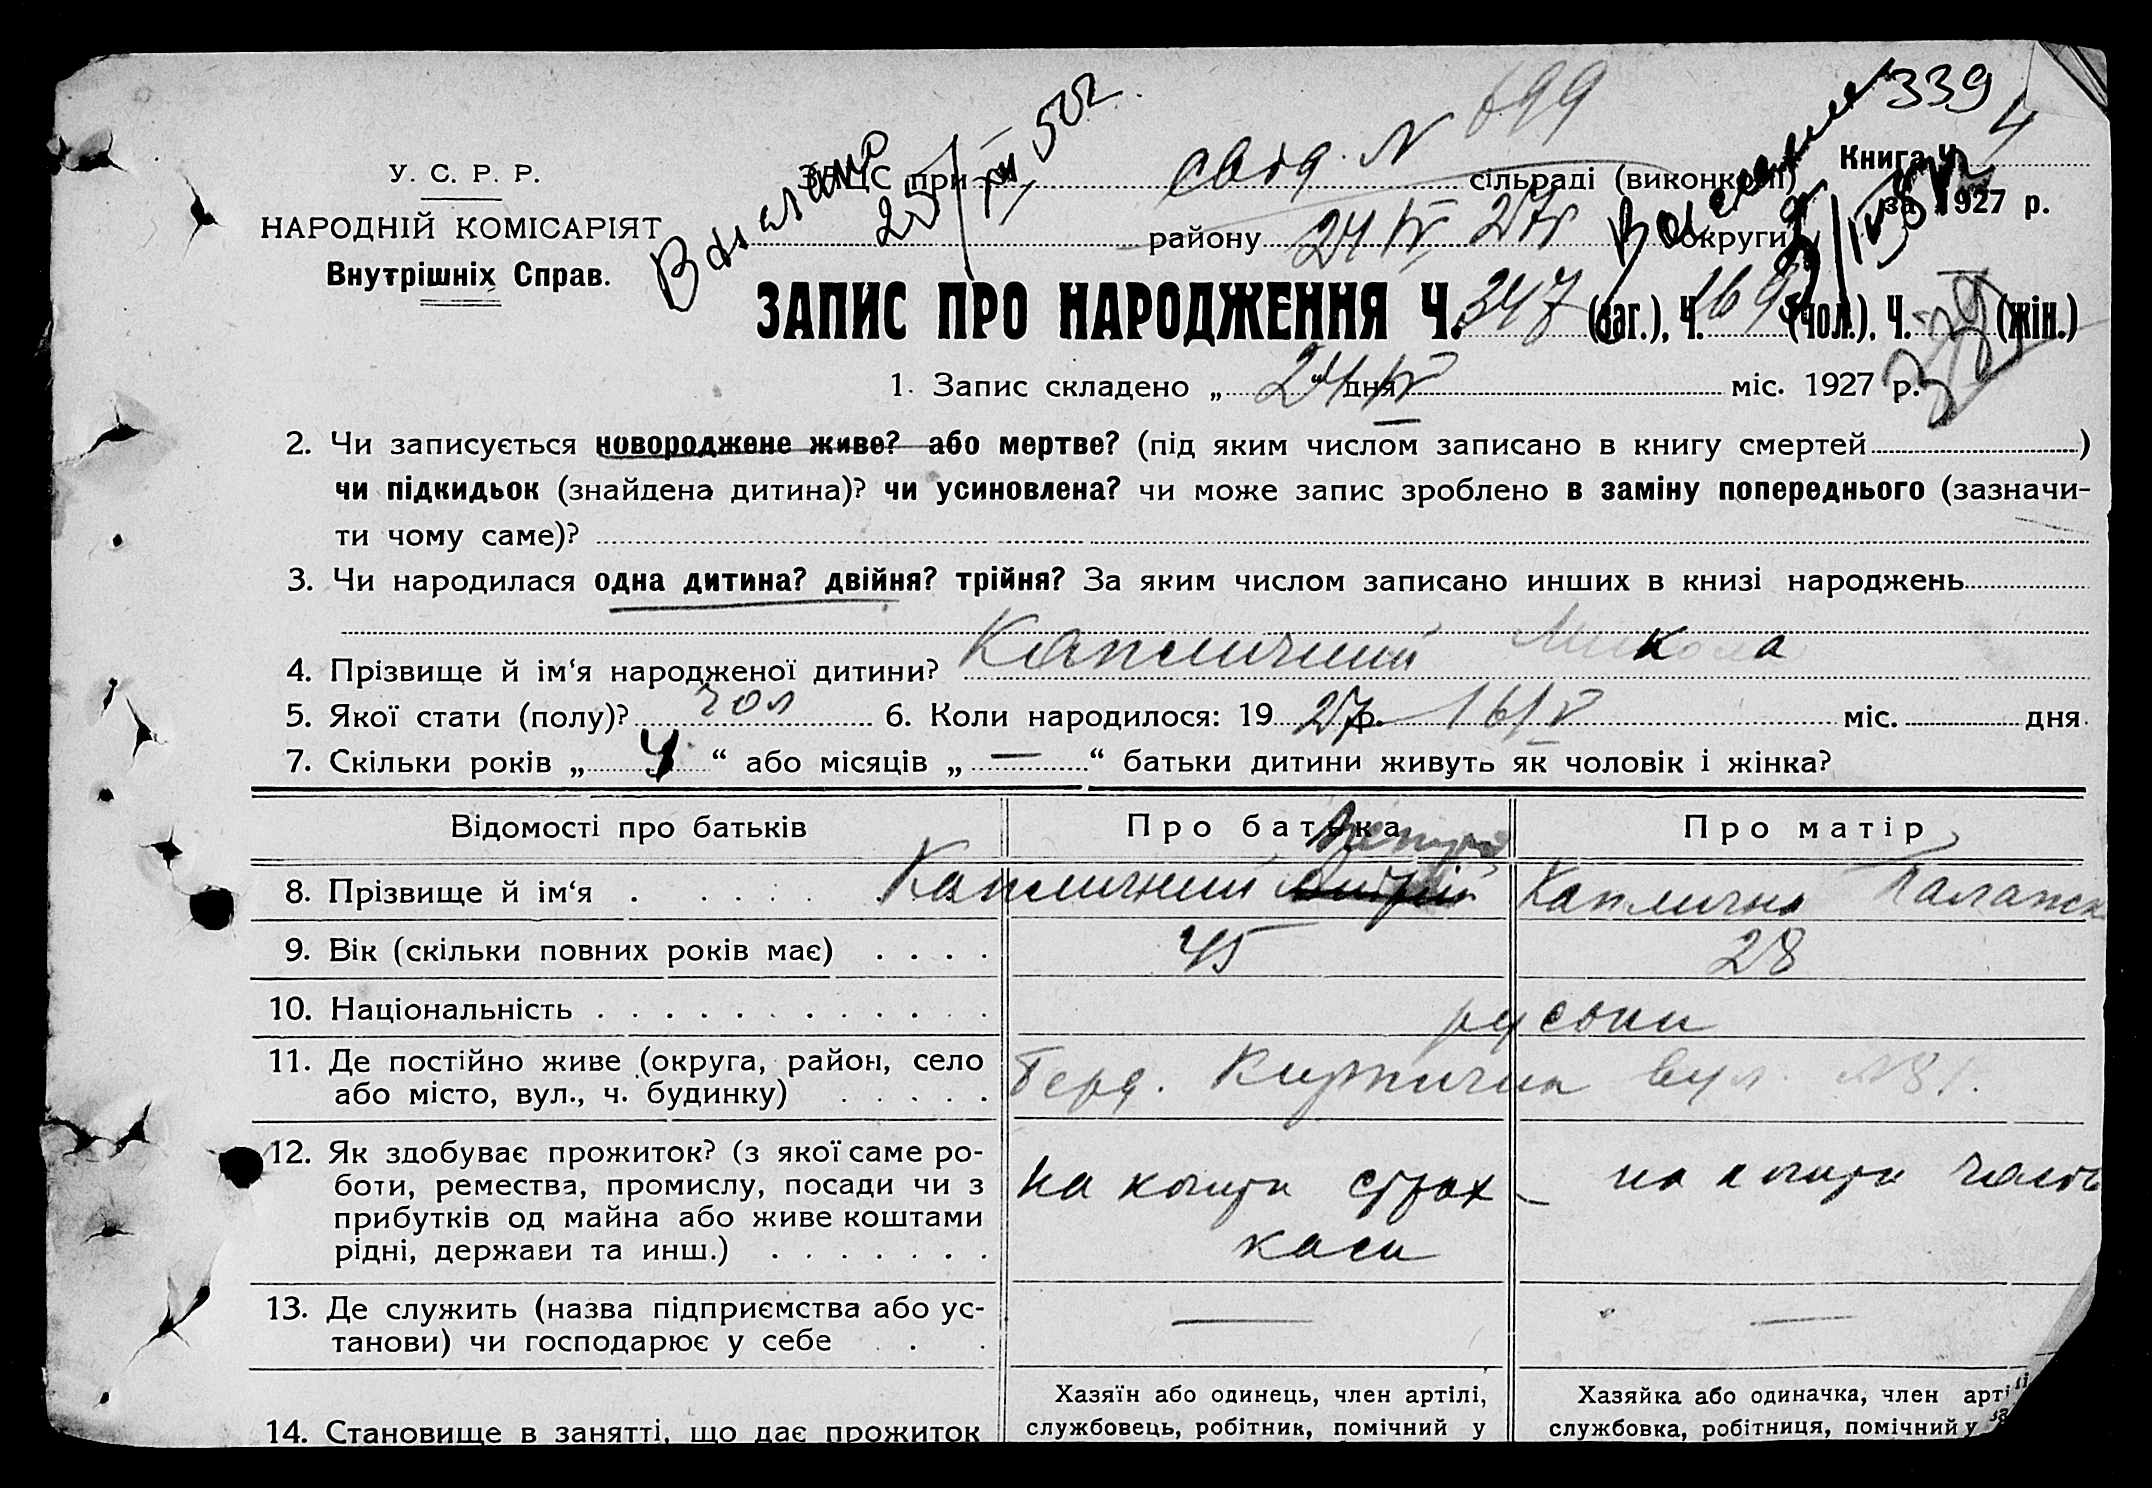 339
Выслано 25/XII 50г.
У. С. Р. Р.
НАРОДНІЙ КОМІСАРІЯТ
Внутрішніх Справ.
ЗАЦС при свід. N 699 сільраді (виконкомі)
Книга Ч. 4
за 1927 р.
району 24/IV 27р округи
ЗАПИС ПРО НАРОДЖЕННЯ Ч. 347 (заг.), Ч. 169 (чол.), Ч. (жін.)
339
1. Запис складено „ 24/IV “ дня міс. 1927 р.
2. Чи записується новороджене живе? або мертве? (під яким числом записано в книгу смертей )
чи підкидьок (знайдена дитина)? чи усиновлена? чи може запис зроблено в заміну попереднього (зазначи-
ти чому саме)?
3. Чи народилася одна дитина? двійня? трійня? За яким числом записано инших в книзі народжень
4. Прізвище й ім‘я народженої дитини? Капличний Микола
5. Якої стати (полу)? чол 6. Коли народилося: 19 27р. 16/IV міс. дня
7. Скільки років „ 4 “ або місяців „ — “ батьки дитини живуть як чоловік і жінка?
Відомості про батьків Про батька Про матір
8. Прізвище й ім‘я Капличний Капличня Палажк
9. Вік (скільки повних років має) 45 28
10. Національність руськи
11. Де постійно живе (округа, район, село
або місто, вул., ч. будинку)
Берд. вул.
12. Як здобуває прожиток? (з якої саме ро-
боти, ремества, промислу, посади чи з
прибутків од майна або живе коштами
рідні, держави та инш.)
на кошти страх – на кошти
каси
13. Де служить (назва підприємства або ус-
танови) чи господарює у себе — —
14. Становище в занятті, що дає прожиток
Хазяїн або одинець, член артілі,
службовець, робітник, помічний у
Хазяйка або одиначка, член арті
службовка, робітниця, помічний у